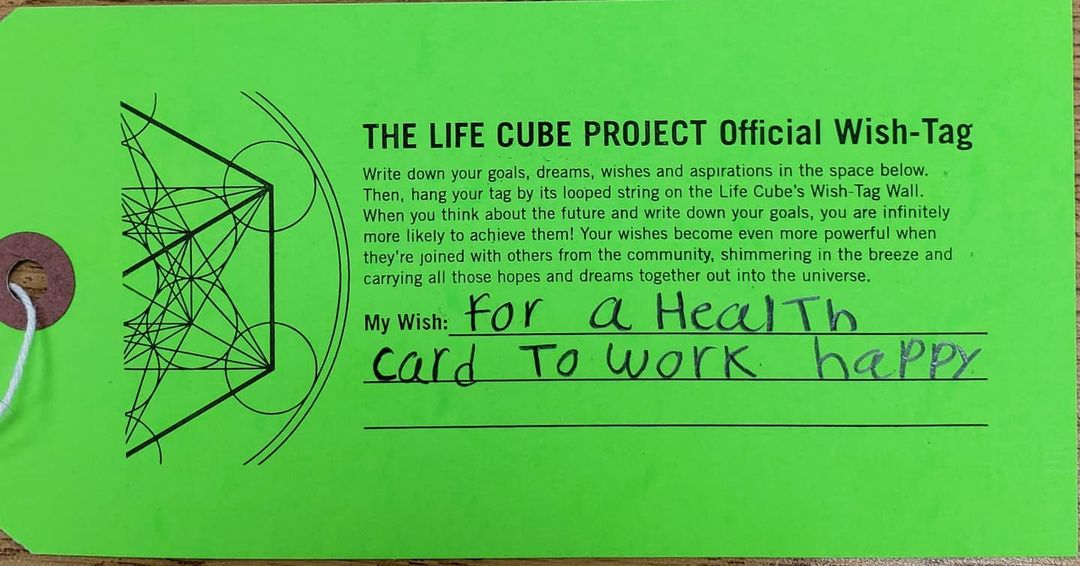 THE LIFE CUBE PROJECT Official Wish-Tag
Write down your goals, dreams, wishes and aspirations in the space below.
Then, hang your tag by its looped string on the Life Cube's Wish-Tag Wall.
When you think about the future and write down your goals, you are infinitely
more likely to achieve them! Your wishes become even more powerful when
they're joined with others from the community, shimmering in the breeze and
carrying all those hopes and dreams together out into the universe.
My Wish: For a HealTh
card To work happy